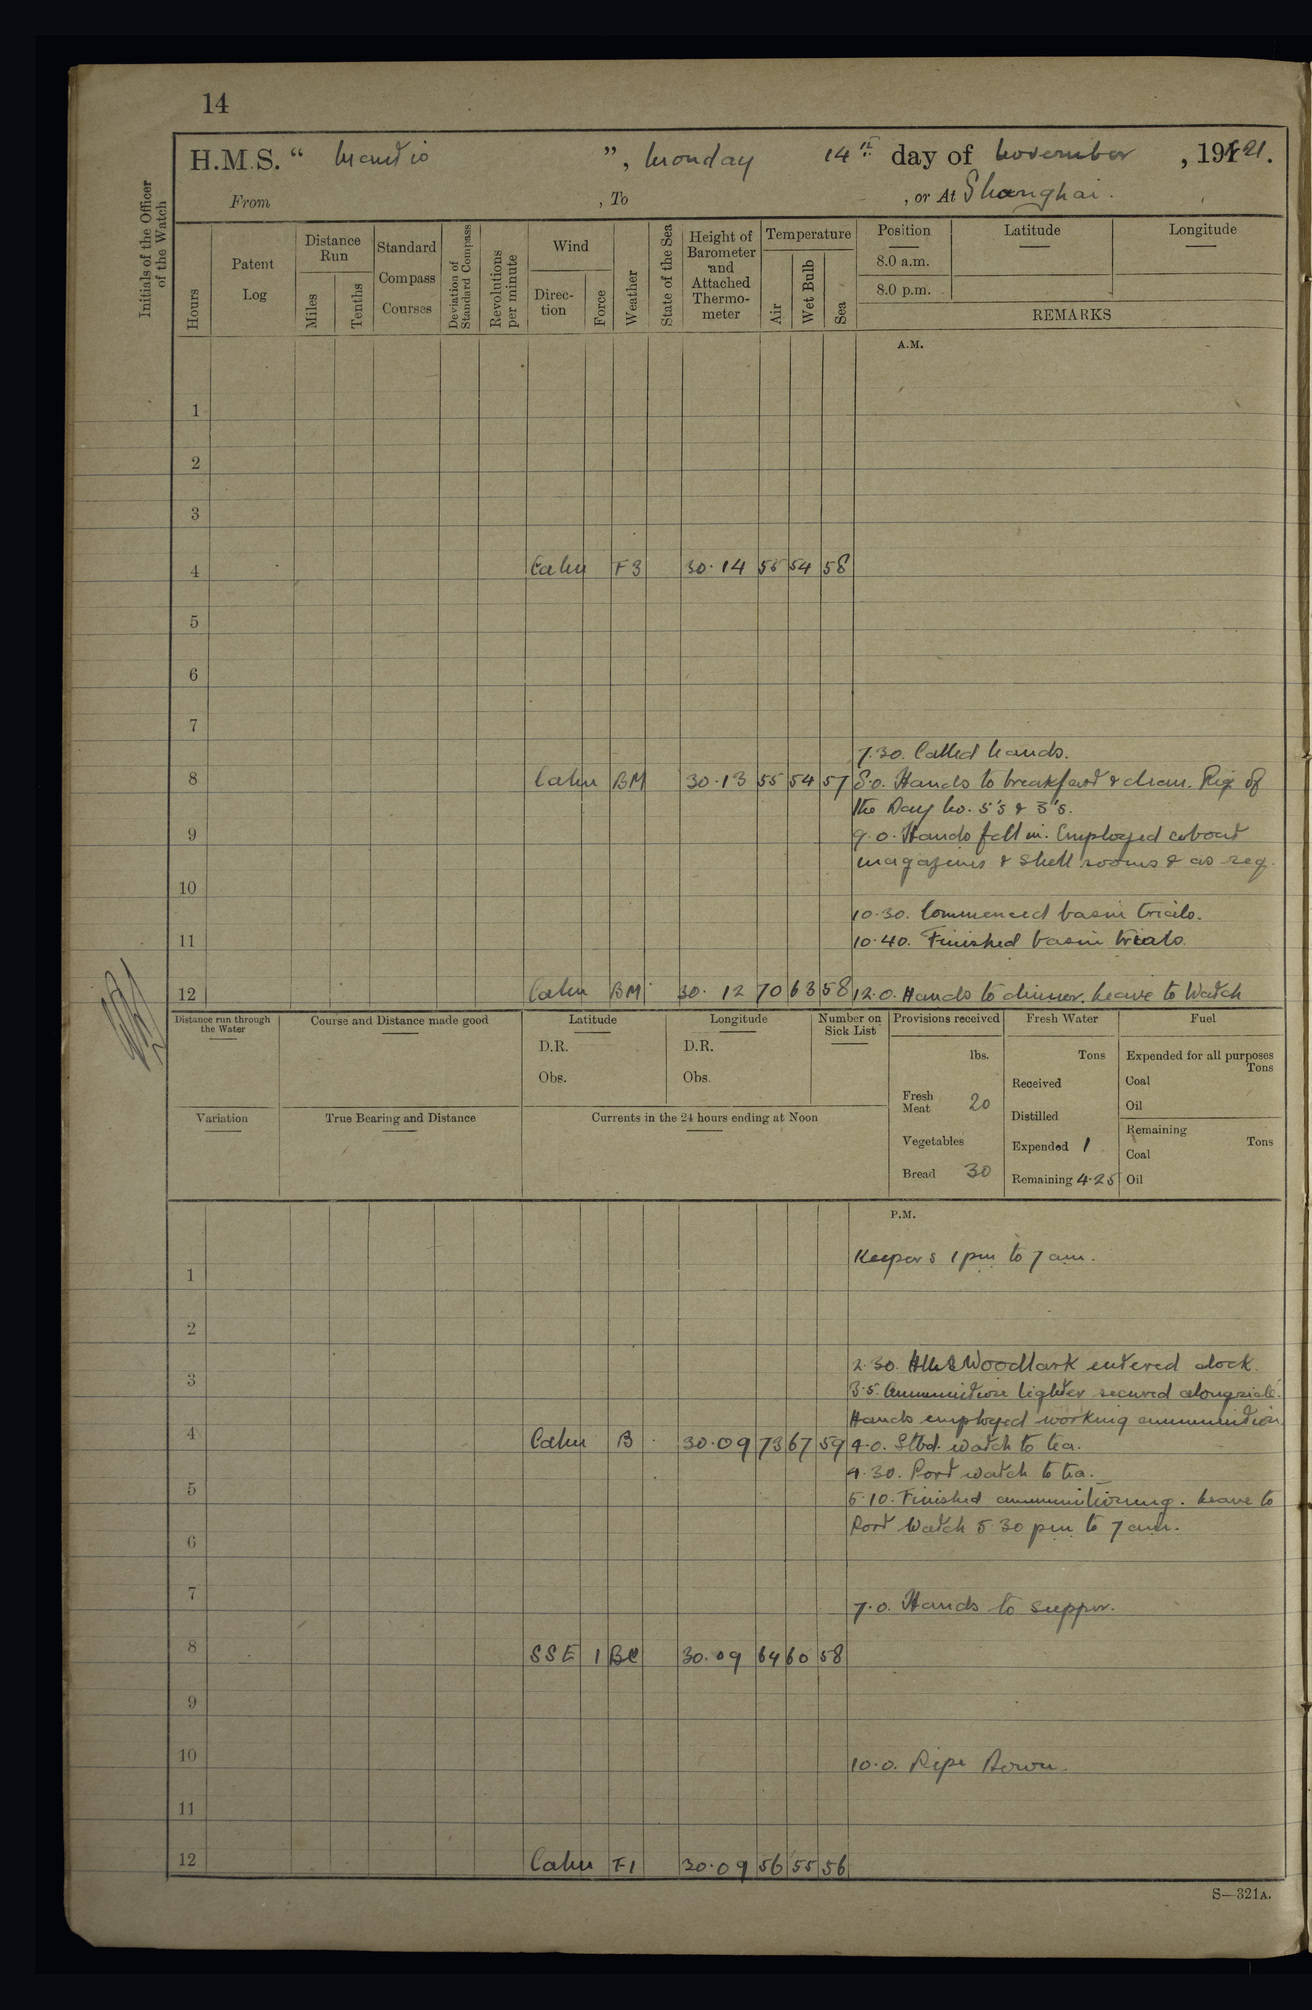 14
H.M.S. "Mantis", Monday 14th day of November, 1921.
From , To , or At Shanghai.
Initials of the Officer of the Watch
Hours
Patent Log
Distance Run
Miles
Tenths
Standard Compass Courses
Deviation of Standard Compass
Revolutions per minute
Wind
Direction
Force
Weather
State of the Sea
Height of Barometer and Attached Thermometer
Temperature
Air
Wet Bulb
Sea
Position
Latitude
Longitude
8.0 a.m.
8.0 p.m.
REMARKS
A.M.
1
2
3
4 Calm F3 30.14 55 54 58
5
6
7
7.30. Called hands.
8 Calm BM 30.13 55 54 57 8.0. Hands to breakfast & clean. Rig of
the Day No. 5's & 3's.
9 9.0. Hands fell in. Employed about
magazines & shell rooms & as req.
10
10.30. Commenced basin trials.
11 10.40. Finished basin trials.
12 Calm BM 30.12 70 63 58 12.0. Hands to dinner. Leave to Watch
Distance run through the Water
Course and Distance made good
Latitude
D.R.
Obs.
Longitude
D.R.
Obs.
Number on Sick List
Provisions received
lbs.
Fresh Meat 20
Vegetables
Bread 30
Fresh Water
Tons
Received
Distilled
Expended 1
Remaining 4.25
Fuel
Expended for all purposes
Tons
Coal
Oil
Remaining
Tons
Coal
Oil
Variation
True Bearing and Distance
Currents in the 24 hours ending at Noon
P.M.
Keepers 1 pm to 7 am.
1
2
2.30. HMS Woodlark entered dock.
3 3.5. Ammunition lighter secured alongside.
Hands employed working ammunition
4 Calm B 30.09 73 67 59 4.0. Stbd. watch to tea.
4.30. Port watch to tea.
5 5.10. Finished ammunitioning. Leave to
Port Watch 5.30 pm to 7 am.
6
7 7.0. Hands to supper.
8 SSE 1 BC 30.09 64 60 58
9
10 10.0. Pipe Down.
11
12 Calm F1 30.09 56 55 56
S—321A.